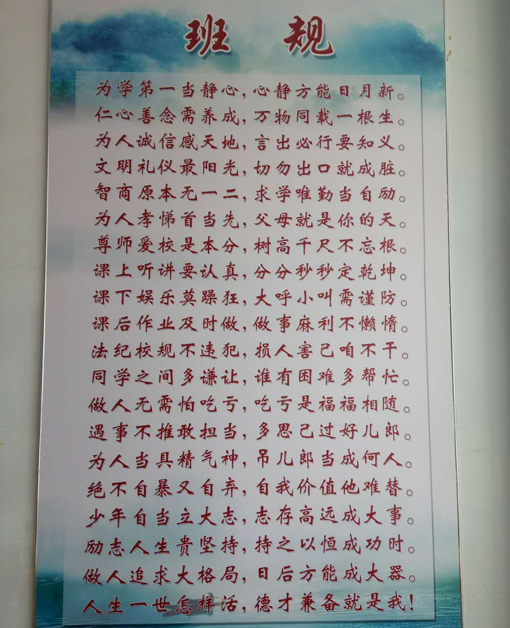 班规
为学第一当静心,心静方能日月新。
仁心善念需养成,万物同载一根生。
为人诚信感天地,言出必行要知义。
文明礼仪最阳光,切勿出口就成脏。
智商原本无一二,求学唯勤当自励。
为人孝悌首当先,父母就是你的天。
尊师爱校是本分,树高千尺不忘根。
课上听讲要认真,分分秒秒定乾坤。
课下娱乐莫躁狂,大呼小叫需谨防。
课后作业及时做,做事麻利不懒惰。
法纪校规不违犯,损人害己咱不干。
同学之间多谦让,谁有困难多帮忙。
做人无需怕吃亏,吃亏是福福相随。
遇事不推敢担当,多思己过好儿郎。
为人当具精气神,吊儿郎当成何人。
绝不自暴又自弃,自我价值他难替。
少年自当立大志,志存高远成大事。
励志人生贵坚持,持之以恒成功时。
做人追求大格局,日后方能成大器。
人生一世怎样活,德才兼备就是我!